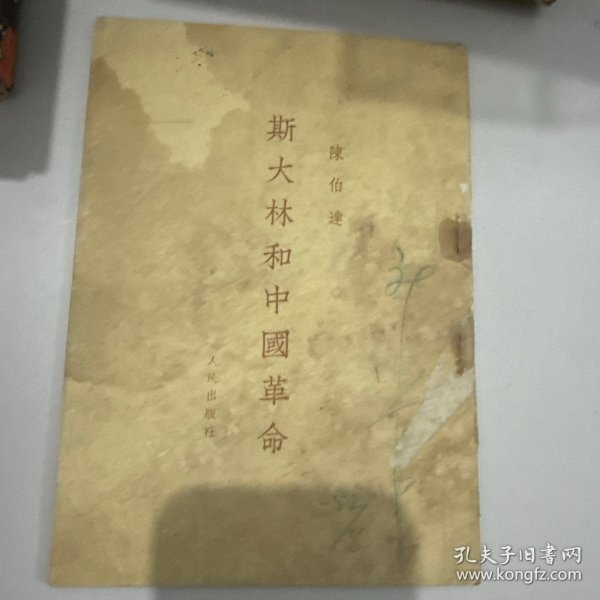 陳伯達
斯大林和中國革命
人民出版社
孔夫子旧書网
www.kongfz.com